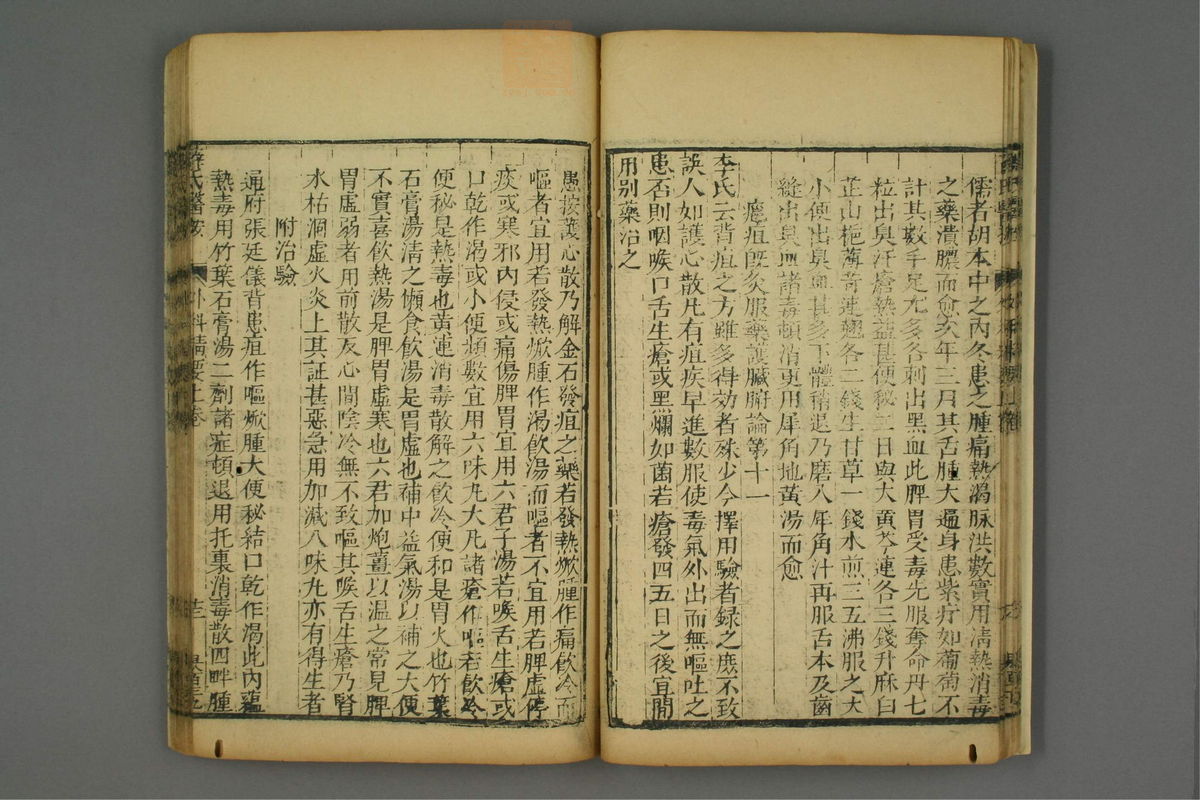 儒者胡本中之內冬患之腫痛熱渴脉洪數實用清熱消毒
之藥潰膿而愈次年三月其舌腫大遍身患紫疔如葡萄不
計其數手足尤多各刺出黑血此脾胃受毒先服奪命丹七
粒出臭汗瘡熱益甚便秘二日與大黃芩連各三錢升麻白
芷山梔薄荷連翹各二錢生甘草一錢水煎三五沸服之大
小便出臭血甚多下體稍退乃磨入犀角汁再服舌本及齒
縫出臭血諸毒頓消更用犀角地黃湯而愈
癰疽旣灸服藥護臟腑論第十一
李氏云背疽之方雖多得効者殊少今擇用驗者録之庶不致
誤人如護心散凡有疽疾早進數服使毒氣外出而無嘔吐之
患否則咽喉口舌生瘡或黑爛如菌若瘡發四五日之後宜間
用别藥治之
愚按護心散乃解金石發疽之藥若發熱焮腫作痛飲冷而
嘔者宜用若發熱焮腫作渴飲湯而嘔者不宜用若脾虛停
痰或寒邪內侵或痛傷脾胃宜用六君子湯若喉舌生瘡或
口乾作渴或小便頻數宜用六味丸大凡諸瘡作嘔若飲冷
便秘是熱毒也黃連消毒散解之飲冷便和是胃火也竹葉
石膏湯清之懶食飲湯是胃虛也補中益氣湯以補之大便
不實喜飲熱湯是脾胃虛寒也六君加炮薑以溫之常見脾
胃虛弱者用前散反心間陰冷無不致嘔其喉舌生瘡乃腎
水枯涸虛火炎上其証甚惡急用加減八味丸亦有得生者
附治驗
通府張廷儀背患疽作嘔焮腫大便秘結口乾作渴此內蘊
熱毒用竹葉石膏湯二劑諸症頓退用托裏消毒散四畔腫
薛氏醫按 外科精要上卷